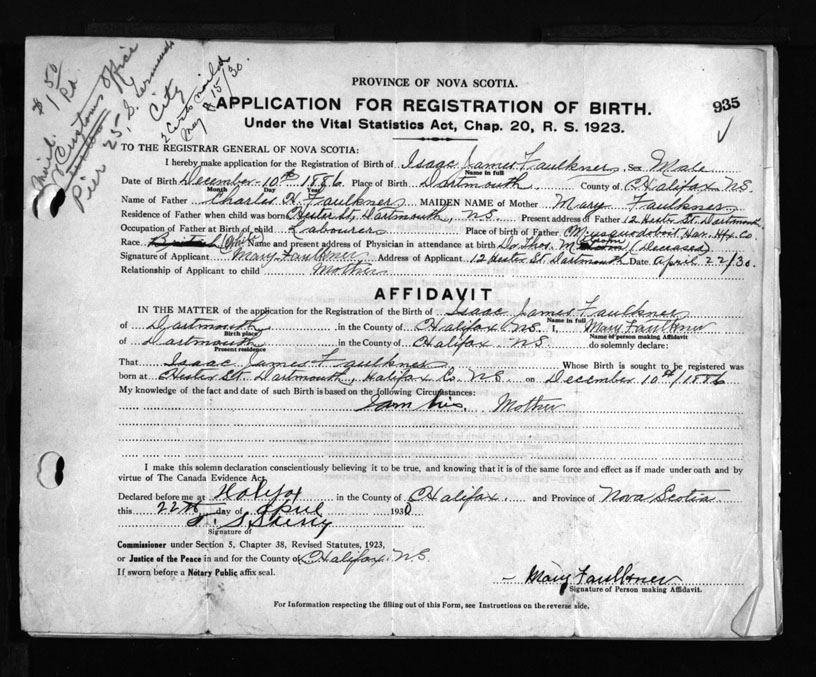 $ 1 50
Pd.
Customs Office
Pier 25, S. Terminals
City
2 Certs mailed
May 15/30.
PROVINCE OF NOVA SCOTIA.
APPLICATION FOR REGISTRATION OF BIRTH.
935
Under the Vital Statistics Act, Chap. 20, R. S. 1923.
TO THE REGISTRAR GENERAL OF NOVA SCOTIA:
I hereby make application for the Registration of Birth of Isaac James Faulkner Sex Male
Name in full
Date of Birth December 10th 1886 Place of Birth Dartmouth County of Halifax N.S.
Month Day Year
Name of Father Charles H. Faulkner MAIDEN NAME of Mother Mary Faulkner
Residence of Father when child was born Hester St, Dartmouth, N.S. Present address of Father 12 Hester St. Dartmouth
Occupation of Father at Birth of child Labourer Place of birth of Father Musquodoboit Har. Hfx. Co.
Race British White Name and present address of Physician in attendance at birth Dr. Thos. (Deceased)
Signature of Applicant Mary Faulkner Address of Applicant 12 Hester St Dartmouth Date April 22/30.
Relationship of Applicant to child Mother
AFFIDAVIT
IN THE MATTER of the application for the Registration of the Birth of Isaac James Faulkner
Name in full
of Dartmouth in the County of Halifax N.S. I, Mary Faulkner
Birth place Name of person making Affidavit
of Dartmouth in the County of Halifax N.S. do solemnly declare:
Present residence
That Isaac James Faulkner Whose Birth is sought to be registered was
born at Hester St. Dartmouth, Halifax Co. N.S. on December 10th/1886
My knowledge of the fact and date of such Birth is based on the following Circumstances:
I am his Mother
I make this solemn declaration conscientiously believing it to be true, and knowing that it is of the same force and effect as if made under oath and by
virtue of The Canada Evidence Act.
Declared before me at Halifax in the County of Halifax. and Province of Nova Scotia
this 22nd day of April 1930
Signature of
Commissioner under Section 5, Chapter 38, Revised Statutes, 1923,
or Justice of the Peace in and for the County of Halifax. N.S.
If sworn before a Notary Public affix seal.
Mary Faulkner
Signature of Person making Affidavit.
For Information respecting the filling out of this Form, see Instructions on the reverse side.